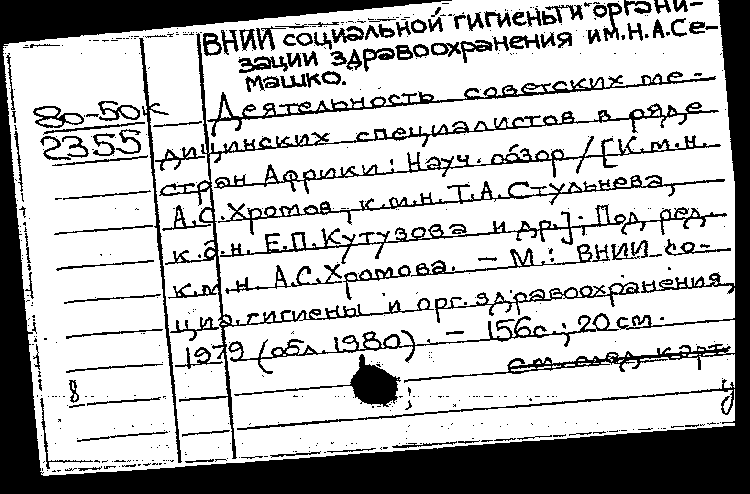 ВНИИ социальной гигиены и органи-
зации здравоохранения им. Н.А.Се-
машко.
80-50к
2355
Деятельность советских ме-
дицинских специалистов в ряде
стран Африки: Науч. обзор / [К.м.н.
А.С.Хромов, к.м.н. Т.А.Стульнева,
к.э.н. Е.П.Кутузова и др.]; Под ред.
к.м.н. А.С.Хромова. – М.: ВНИИ со-
циал. гигиены и орг. здравоохранения,
1979 (обл. 1980). – 156с.; 20см.
см. след. карт.
8
у